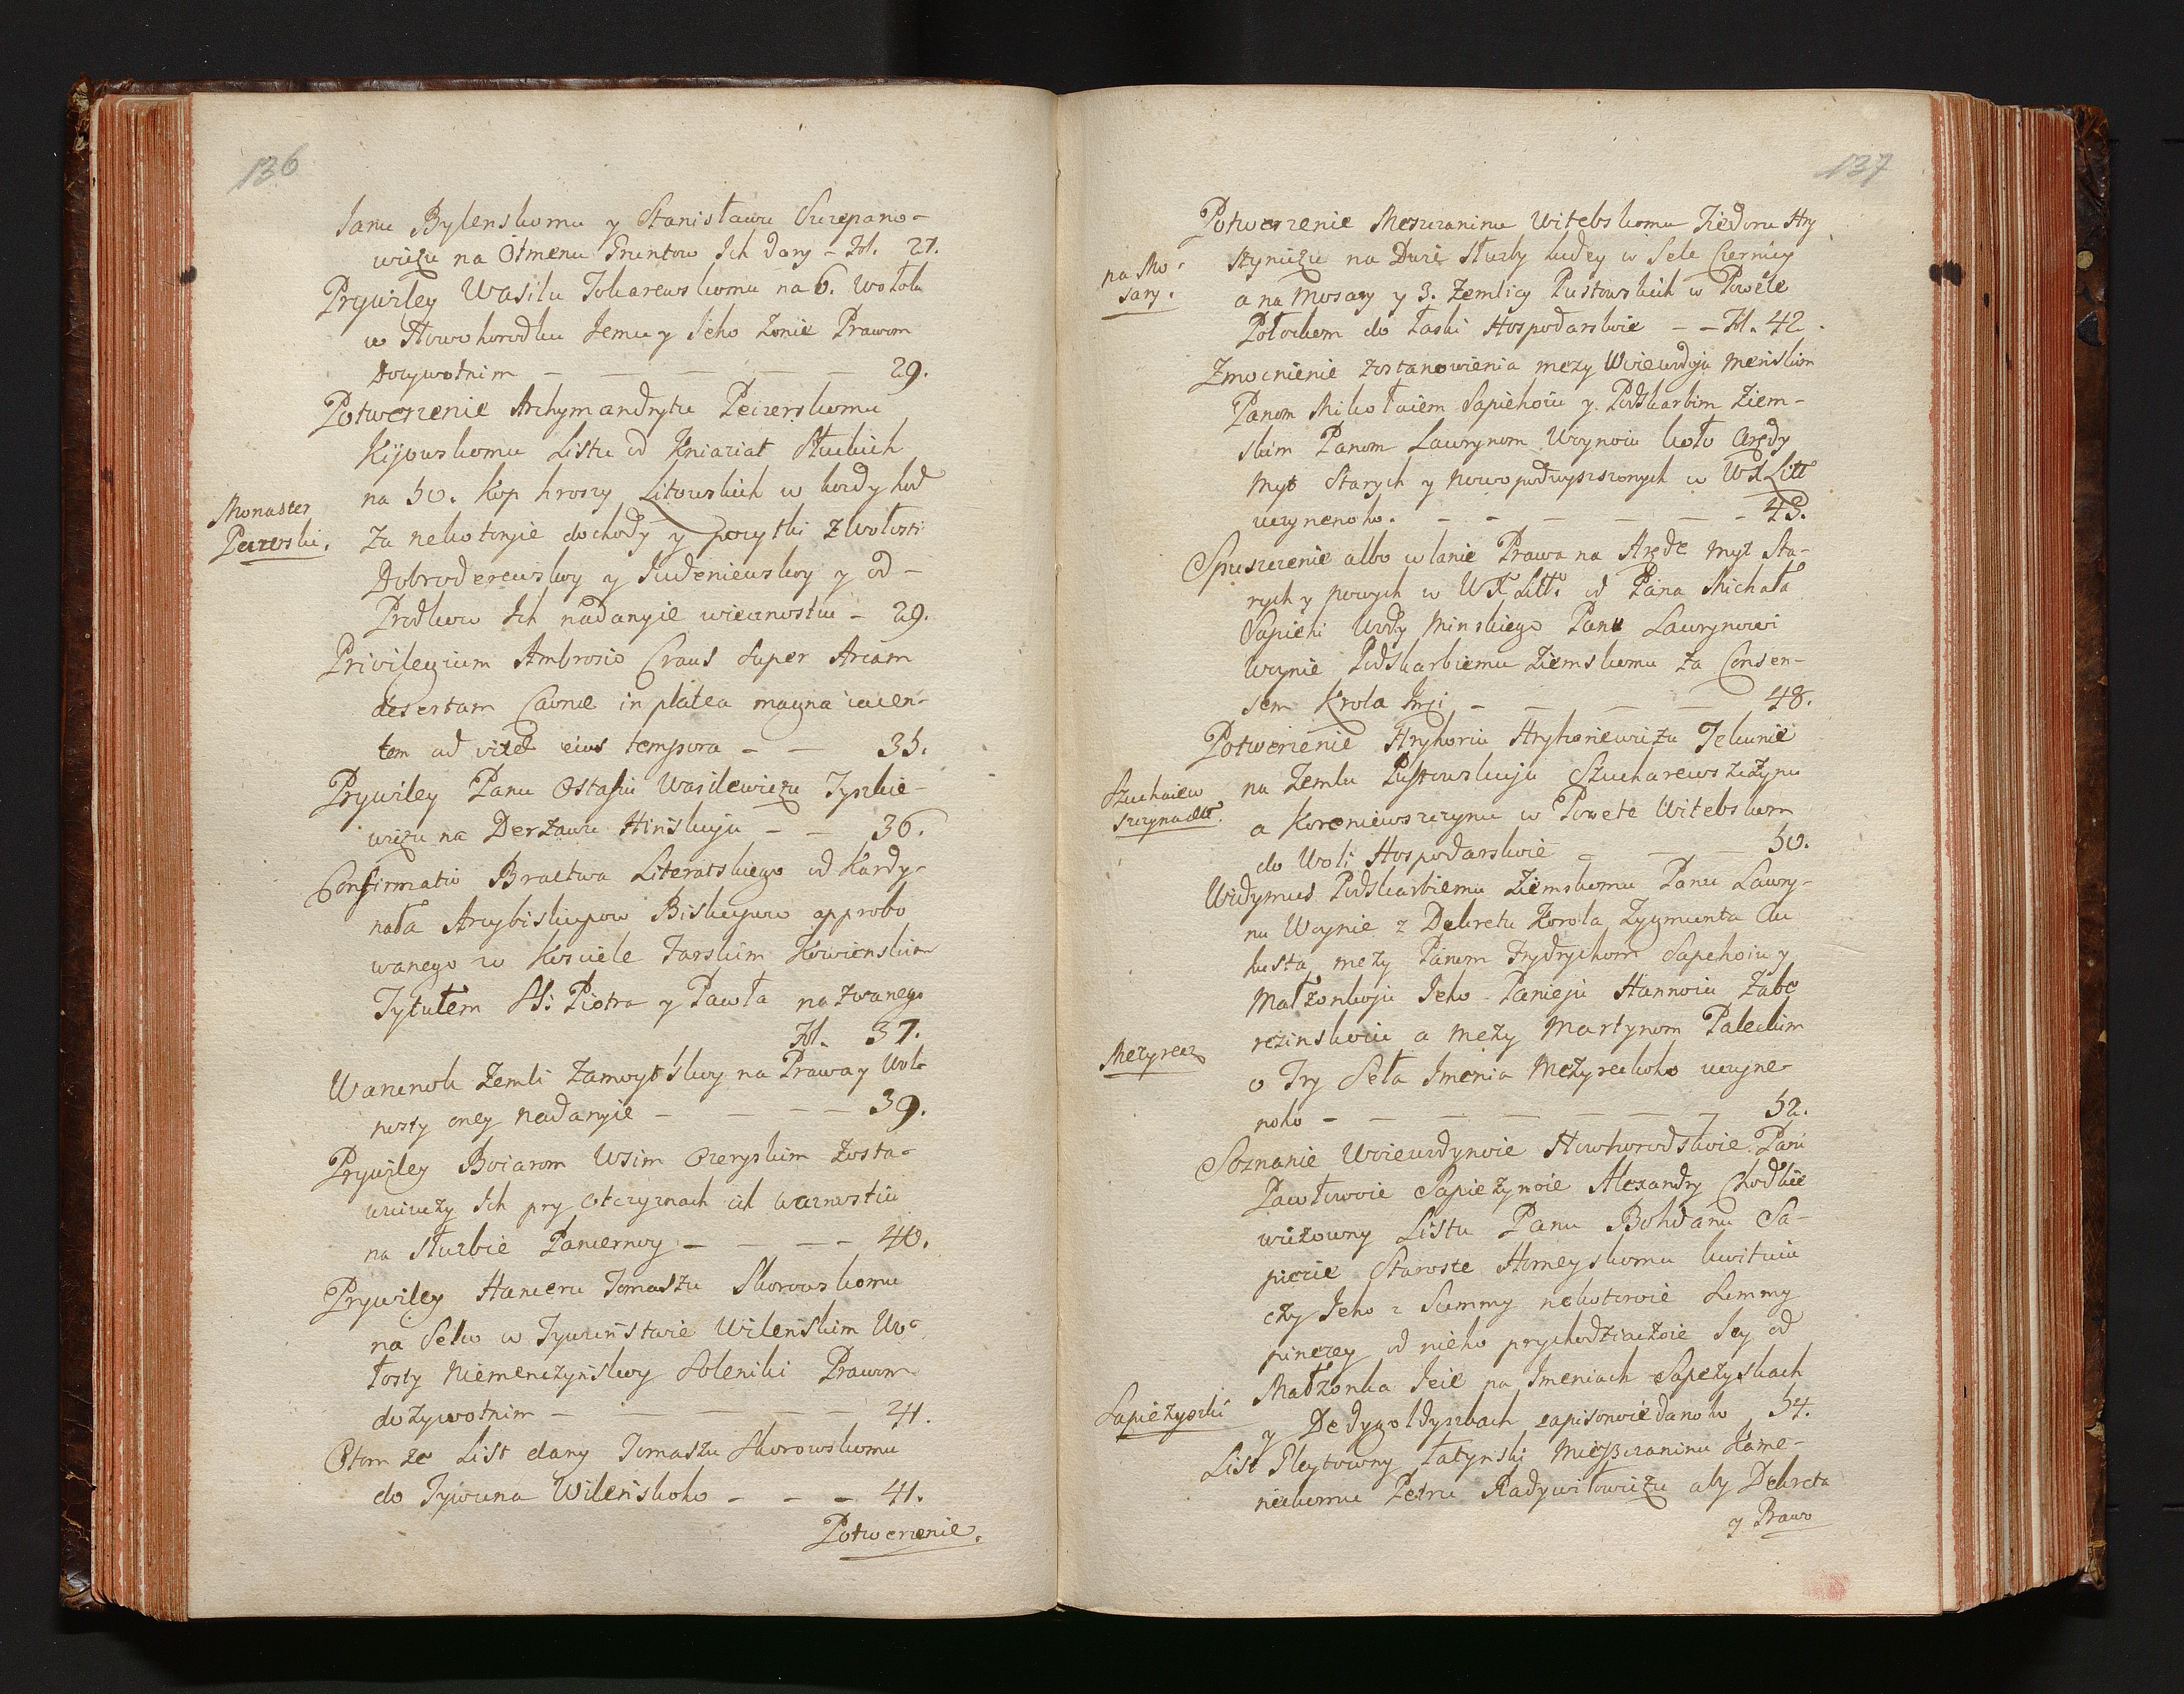 136
Janu Bylenskomu y Stanisławu Szczepano-
wiczu na Otmenu Gruntow Ich dany - Fol. 27.
Prywiley Wasilu Tokarewskomu na 6. Wołok
w Nowohorodku Jemu y Jeho Zonie Prawom
Dozywotnim - - - - - 29.
Potwerzenie Archymandrytu Peczerskomu
Kijowskomu Listu od Kniaziat Słuckich
na 50. Kop hroszy Litowskich w kozdy hod
Monaster
Peczerski.
Za nekotoryie dochody y pozytki z Wołosti
Dobroderewskoy y Judeniewskoy y od
Prodkow Ich nadanyie wiecznostiu - 29.
Privilegium Ambrosio Craus super Aream
desertam Caunæ in platea magna iacen-
tem ad vitæ eius tempora - - 35.
Prywiley Panu Ostafiu Wasilewiczu Tyszkie-
wiczu na Derzawu Hinskuju - - 36.
Confirmatio Bractwa Literatskiego od Kardy-
nała Arcybiskupow Biskupow approbo
wanego w Kosciele Farskim Kowienskim
Tytułem SS: Piotra y Pawła nazwanego
Fol. 37.
Warunok Zemli Zamoytskoy na Prawa y Wol-
nosty oney nadanyie - - - - 39.
Prywiley Boiarom Wsim Ozeryskim Zosta-
wuiuczy Ich pry Otczyznach ich wecznostiu
na słuzbie Pancernoy - - - - 40.
Prywiley Hanceru Tomaszu Skorowskomu
na Seło w Tywunstwie Wilenskim Wo-
łosty Niemenczynskoy Soleniki Prawom
dozywotnim - - - - - 41.
O tom ze List dany Tomaszu Skorowskomu
do Tywuna Wilenskoho - - - 41.
Potwerzenie.
137
Potwerzenie Meszczaninu Witebskomu Fiedoru Hry
szyniczu na Dwie słuzby ludey w Sele Czernicy
na Mo-
sary.
a na Mosary y 3. Zemlicy Pustowskich w Powete
Połockom do łaski Hospodarskoie - - Fol. 42.
Zmocnienie zostanowienia mezy Woiewodoju Menskim
Panom Mikołaiem Sapiehoiu y Podskarbim Ziem-
skim Panom Lawrynom Woynoiu koło Arędy
Myt Starych y Nowopodwyszszonych w WXLitt
uczynenoho. - - - - - 43.
Spuszczenie albo wlanie Prawa na Arędę Myt Sta-
rych y nowych w WXLitt. od Pana Michała
Sapiehi Wody Minskiego Panu Lawrynowi
Woynie Podskarbiemu Ziemskomu za Consen-
sem Krola Jmci - - - - 48.
Potwerzenie Hryhoriu Hryhoriewiczu Tekunie
na Zemlu Pustowskuju Szucharewszczyznu
Szuchaiew
szczyna.
a Koreniewszczynu w Powete Witebskom
do Woli Hospodarskoie - - - 50.
Widymus Podskarbiemu Ziemskomu Panu Lawry-
nu Woynie z Dekretu Korola Zygmunta Au
husta mezy Panom Frydrychom Sapehoiu y
Małzonkoju Jeho Panieju Hannoiu Zabe
rezinskoiu a mezy Martynom Paleckim
Mezyrecz
o Try Seła Imenia Mezyreckoho uczyne-
noho - - - - - - 52.
Soznanie Woiewodynoie Nowhorodskoie Pani
Pawłowoie Sapiezynoie Alexandry Chodkie
wiczowny Listu Panu Bohdanu Sa-
piezie Staroste Homeyskomu kwituiu
czy Jeho z Summy nekotoroie Summy
pinezey od nieho prychodziaczoie Jey od
Małzonka Jeie na Imeniach Sapezyskach
Sapiezyszki
y Dedygoldyszkach zapisonoie danoho 54.
List Gleytowny Łatynski Mieszczaninu Kame-
nickomu Petru Radywiłowiczu aby Dekreta
y Prawo